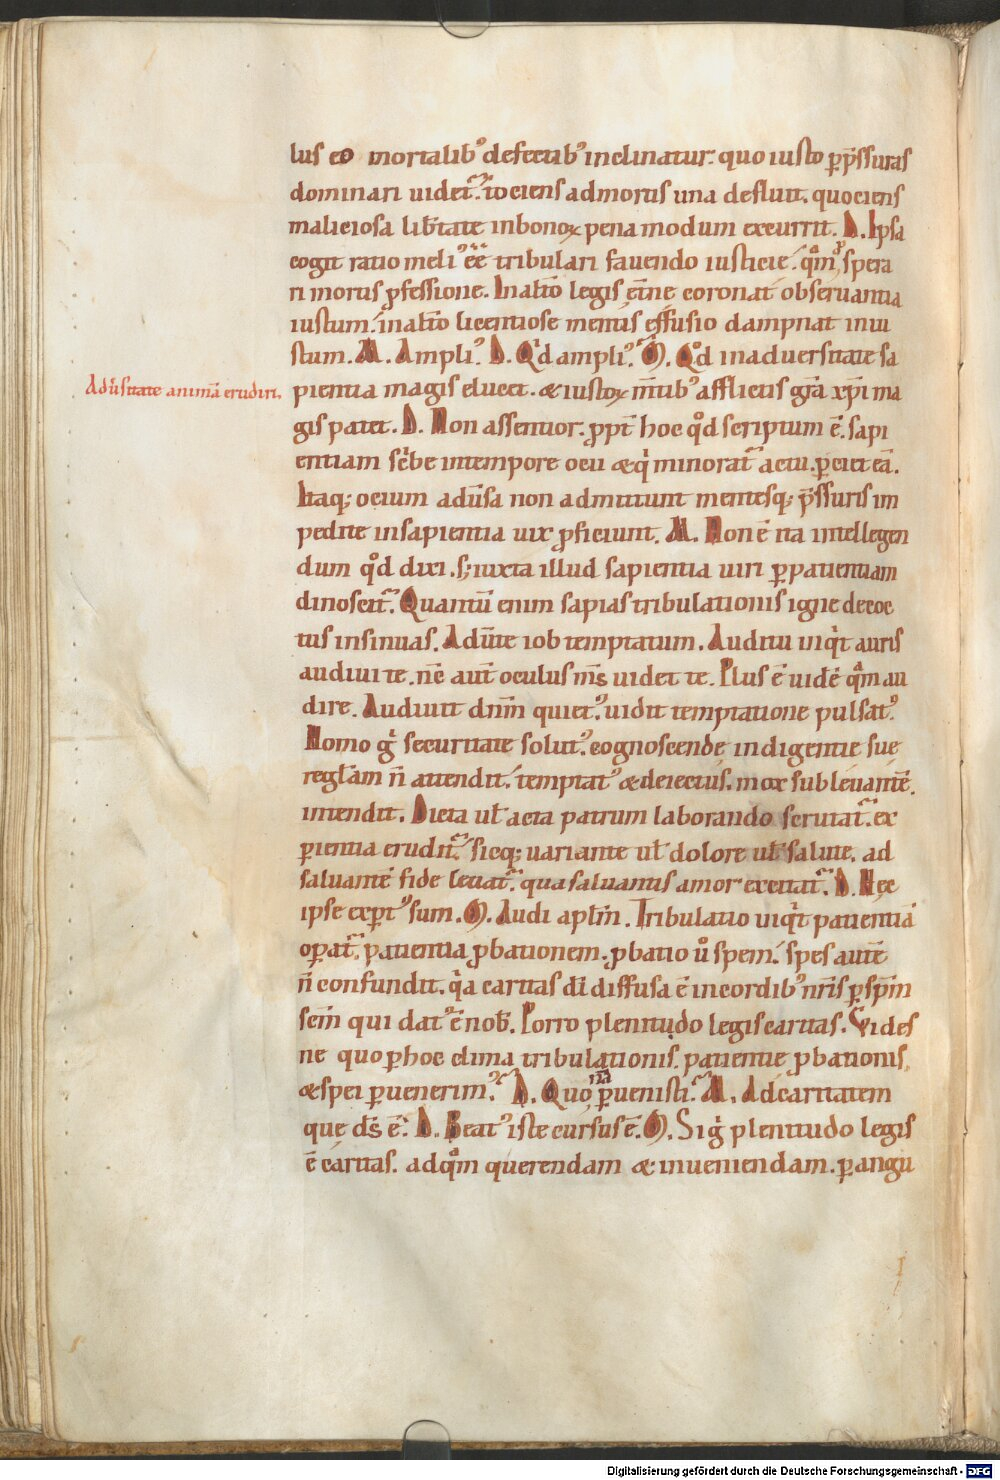 lus eo mortalib⁹ defectib⁹ inclinatur. quo iusto p̲p̄ssuras
dominari uidet᷑. tociens ad mortis una defluit. quociens
maliciosa lib̄tate in bonoꝝ pena modum excurrit. D. Ipsa
cogit ratio meli⁹ ēē tribulari fauendo iusticie. qm̄ spera
ri mortis ꝓfessione. In alt̄io legis et̄ne coronat obseruantia
iustum. in alt̄io licentiose mentis effusio dampnat iniu
stum. M. Ampli⁹. D. Qd ampli⁹. M. Qd in aduersitate sa
Adūsitate animā erudiri.
pientia magis elucet. & iustoꝝ m̄tib⁹ afflictis gr̄a xp̄i ma
gis patet. D. Non assentior. ꝓpt̄ hoc qd scriptum ē. sapi
entiam sc̄be in tempore ocii & qi minorat᷑ actu. ꝑciet eā.
Itaq; ocium adūsa non admittunt mentesq; p̄ssuris im
pedite in sapientia uix ꝓficiunt. M. Non ē ita intellegen
dum qd dixi. s; iuxta illud sapientia uiri ꝑ patientiam
dinoscit᷑. Quantū enim sapias tribulationis igne decoc
tus insinuas. Aduerte iob temptatum. Auditu inqt auris
audiui te. n̄c aut̄ oculus ms̄ uidet te. Plus ē uidē qm̄ au
dire. Audiuit dn̄m quiet⁹. uidit temptatione pulsat⁹.
Homo g̊ securitate solut⁹. cognoscende indigentie sue
regl̄am n̄ attendit. temptat⁹ & deiectus. mox subleuantē
intendit. Dicta ul̄ acta patrum laborando scrutat᷑. ex
ꝑientia erudit᷑. sicq; uariante ul̄ dolore ul̄ salute. ad
saluantē fide leuat᷑. qua saluantis amor excitat᷑. D. Nec
ipse exꝑt⁹ sum. M. Audi apl̄m. Tribulatio inqt patientiā
oꝑat᷑. patientia ꝓbationem. ꝓbatio ů spem. spes autē
n̄ confundit. qa caritas dī diffusa ē in cordib⁹ nr̄is ꝑ sp̄m
sc̄m qui dat⁹ ē nob̄. Porro plenitudo legis caritas. Vides
ne quo ꝑ hoc clima tribulationis. patientie ꝓbationis.
& spei ꝑuenerim⁹. D. Quo ꝑuenisti. M. Ad caritatem
que ds̄ ē. D. Beat⁹ iste cursus ē. M. Si g̊ plenitudo legis
ē caritas. ad qm̄ querendam & inueniendam. ꝑ angu
Digitalisierung gefördert durch die Deutsche Forschungsgemeinschaft - DFG